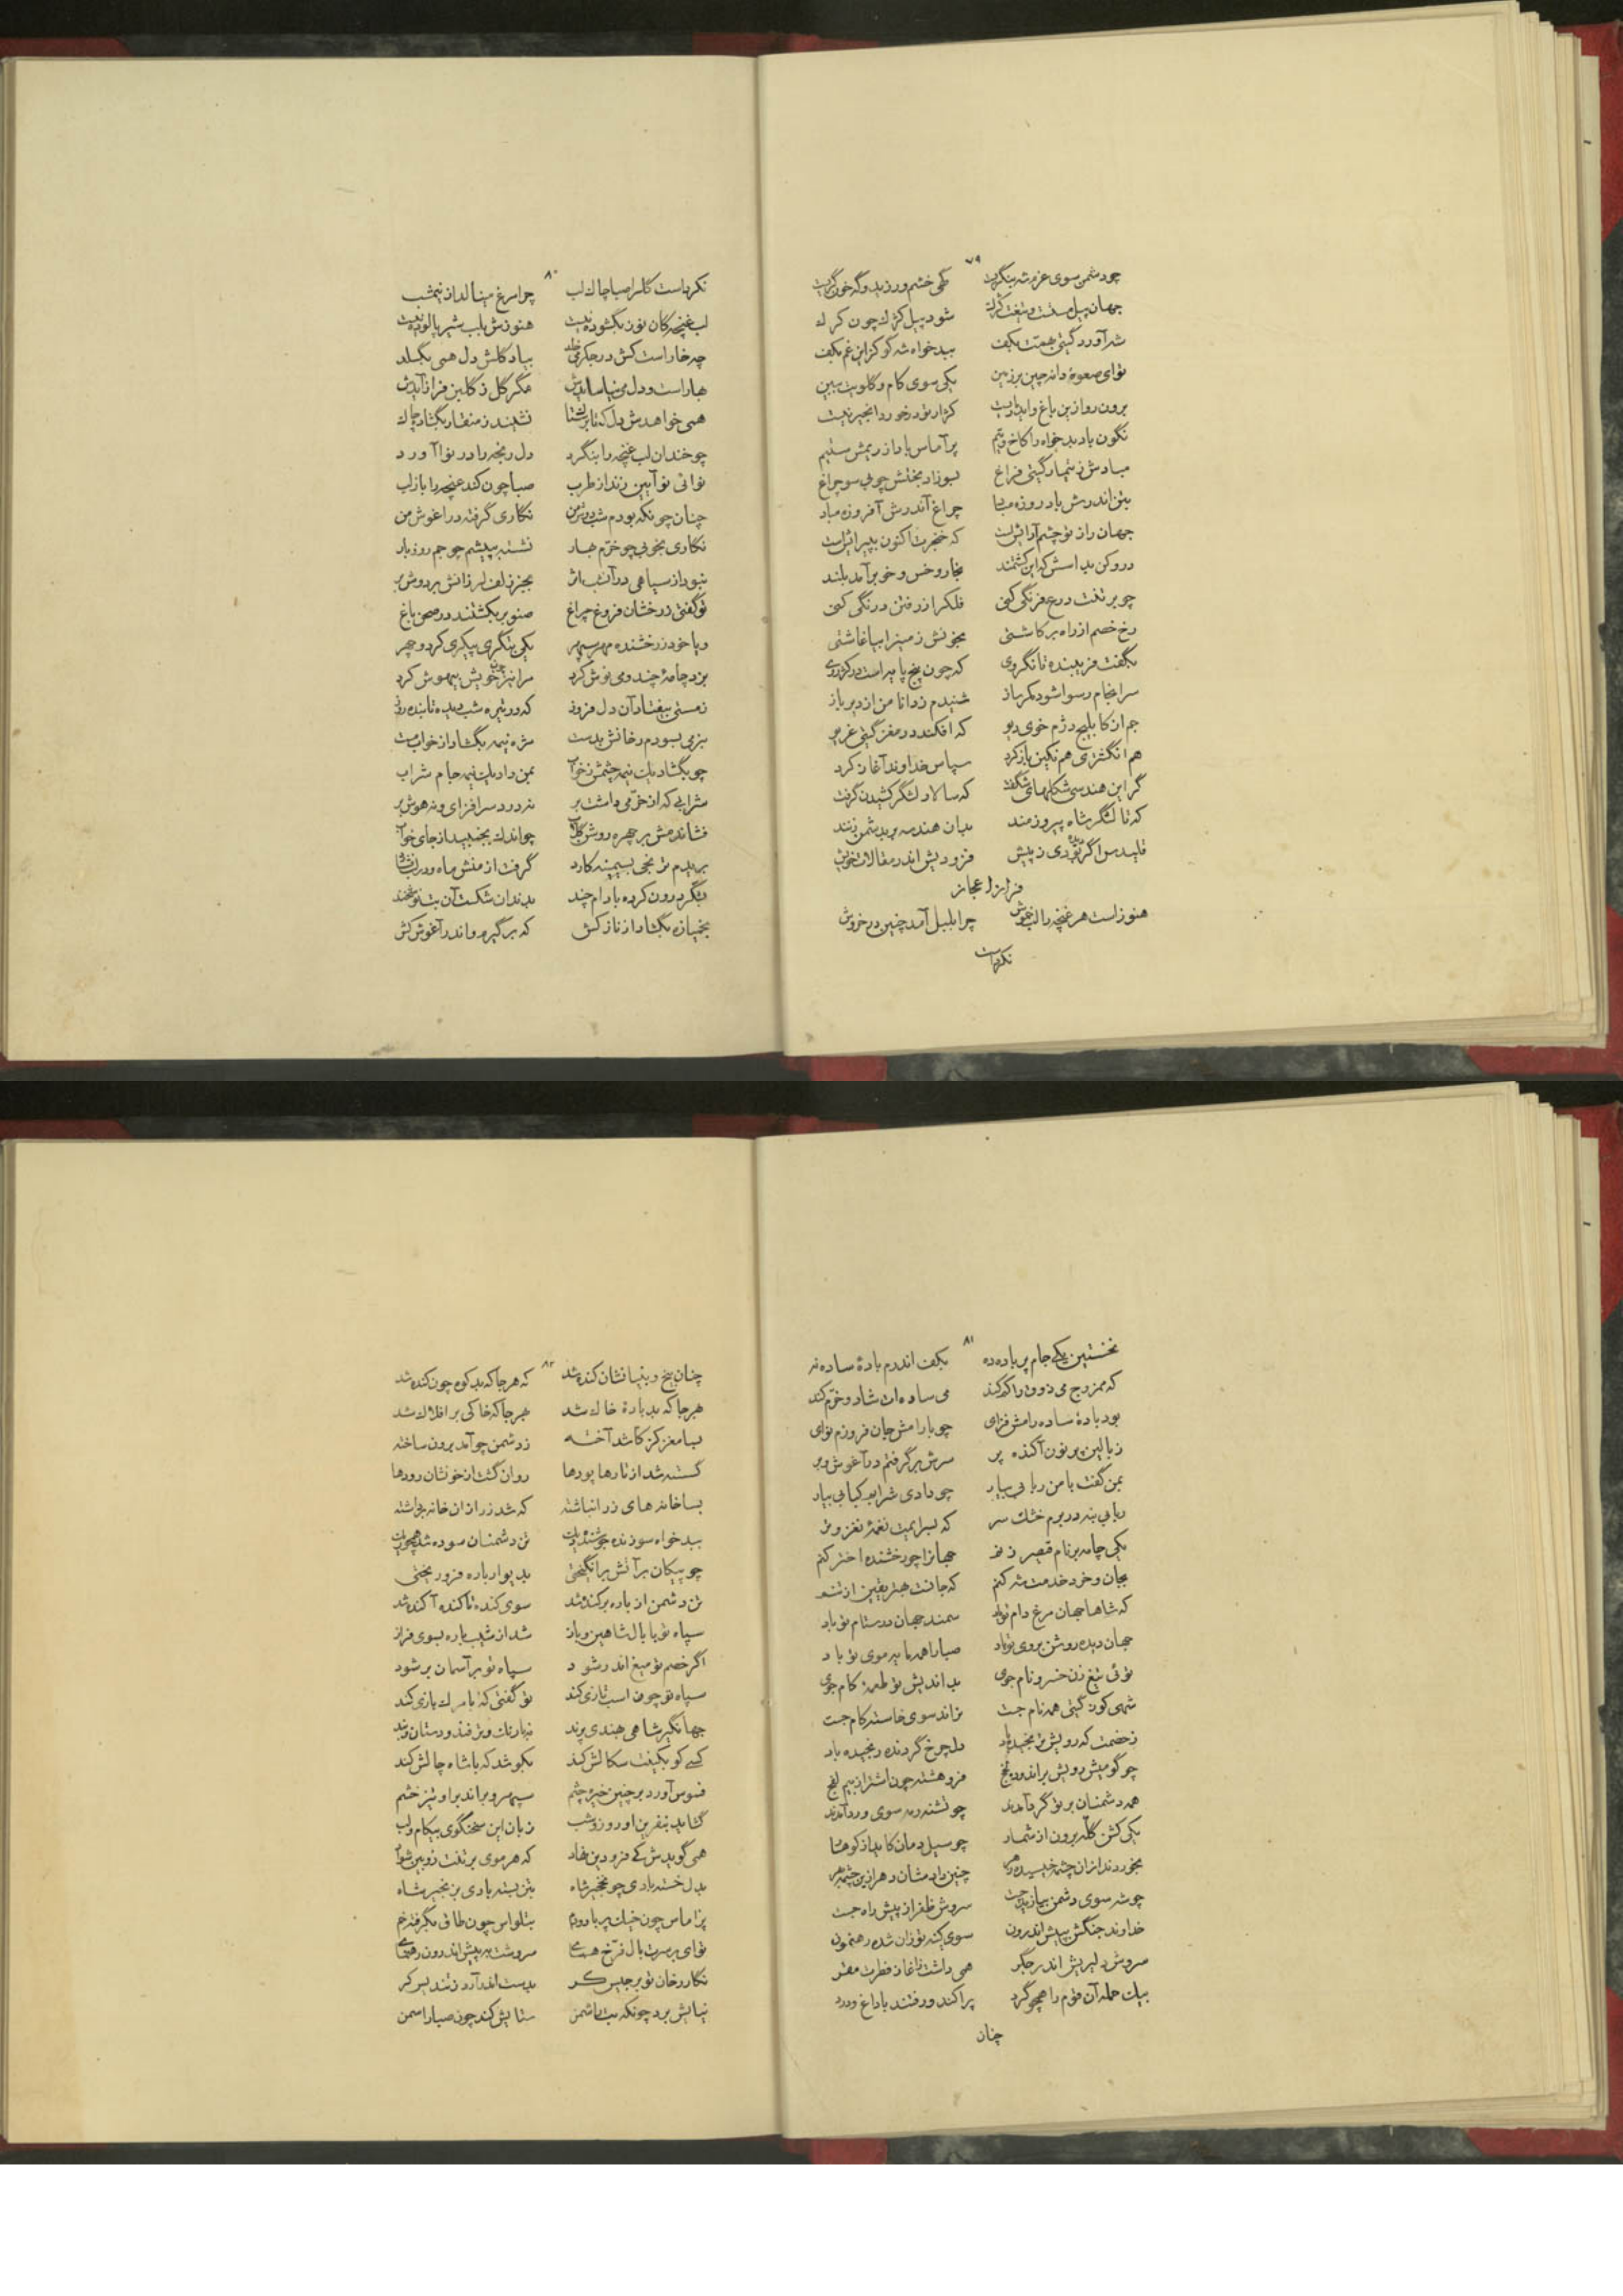 ۷۹
چو دشمن سوی عزم شه بنگریست گهی خشم ورزید و گه خون گریست
جهان پیل مست و تیغت کژک شود پیل کژک چون کرک
شه آورد گیتی بهمت بکف ببدخواه شه گو کزین غم بکف
نوای صعوهٔ دانه چین بر زمین یکی سوی کام و گلویت ببین
برون رو ازین باغ و اینجا مایست کز از تو در خورد انجیر نیست
نگون باد بدخواه را کاخ و تیم پر آماس باد از ریمش ستیم
مبادش ز تیمار گیتی فراغ بسوزاد بختش چو بی سو چراغ
بتن اندرش باد روزه مباد چراغ آندرش آفروزه مباد
جهان را ز تو چشم آرائش است که خنجرت اکنون بپیرائش است
درو کن بداسش که این کشتمند بخار و خس و خو برآمد بلند
چو بر تنت درع فرنگی کنی فلک را ز رفتن درنگی کنی
رخ خصم از راه برکاشتی بخونش زمین را بیاغاشتی
بگفت فریبنده تا نگروی که چون پنج پا یه است در کژروی
سرانجام رسوا شود مکرساز شنیدم ز دانا من از دیر باز
جم از کابلیج دژم خوی دیو که افکند در مغز گیتی غریو
هم انگشتری هم نگین باز کرد سپاس خداوند آغاز کرد
گر این هندسی شکلهای شگفت که سالار لشگر کشیدن گرفت
که تا لشگر شاه پیروزمند بدان هندسه بر بدشمن زنند
قلیدس اگر دیده بودی ز پیش فزودیش اندر مقالات خویش
فرازد اعجاز
هنوز است هر غنچه را لب خموش چرا بلبل آمد چنین در خروش
نکرداست
۸۰
نکرداست گل را صبا چاک لب چرا مرغ مینالد از نیمشب
لب غنچه کان نوز نگشوده نیست هنوزش بلب شیر پالوده نیست
چه خار است کش در جگر می خلد بیاد گلش دل همی بگسلد
بهار است و دل می نیاسایدش مگر گل ز گلبن فراز آیدش
همی خواهدش دل که تا برک شاک نشیند ز منقار بگشاد چاک
چو خندان لب غنچه را بنگرد دل رنجه را در نوا آورد
نوائی نو آیین زند از طرب صبا چون کند غنچه را باز لب
چنان چونکه بودم شب دوش من نگاری گرفته در آغوش من
نگاری بخوبی چو خرّم بهار نشسته به پیشم چو جم روز بار
نبود از سیاهی در آنشب اثر بجز زلف لرزانش بر دوش بر
تو گفتی درخشان فروغ چراغ صنوبر بکشتند در صحن باغ
و یا خود درخشنده مهر سپهر یکی بتگری پیکری کرد و چهر
بزد چامهٔ چند و می نوش کرد مرا نیز چون خویش بیهوش کرد
ز مستی بیفتاد آن دل فروز که در تیره شب دیده تابنده روز
بزمی بسودم رخانش بدست مژه نیمه بگشاد از خواب مست
چو بگشاد یک نیمه چشمش ز خواب بمن داد یک نیمه جام شراب
شرابی که از خرّمی داشت بر نه درد سر افزای و نه هوش بر
فشاندمش بر چهره روشن گلاب چو اندک بجنبید از جای خواب
بریدم ترنجی بسیمینه کارد گرفت از منش ماه و در لب فشارد
بشگر درون کرده بادام چند بدندان شکست آن بت نوشخند
بخمیازه بگشاد از ناز کش که برگیر و اندر آغوش کش
۸۱
نخستین یکی جام پر باده ده بکف اندرم بادهٔ ساده نه
که ممزوج می ذوق را کم کند می ساده ات شاد و خرّم کند
بود بادهٔ ساده رامش فزای چو یارا مش جان فروزم نوای
ز بالین پر نون آکنده پر سرش برگرفتم در آغوش و بر
بمن گفت با من ربابی بیار چو دادی شرابم کبابی بیار
ربابی بنه در برم خشک سر که بسرایمت نغمهٔ نغز و تر
یکی چامه بر نام قیصر زنم جهانرا چو رخشنده اختر کنم
بجان و خرد خدمت شه کنم که جانت بهتریقین از تنم
که شاها جهان مرغ دام تو باد سمند جهان در ستام تو باد
جهان دیده روشن بروی تو باد صبا را همه مایه موی تو باد
توئی تیغ زن خسرو نام جوی بداندیش تو طعمهٔ کام جوی
شهی کون گیتی همه نام جست نراند سوی خاسته کام جست
ز خصمت که رویش ترنجیده باد دل چرخ گردنده رنجیده باد
چو گومیش رویش براندود نخ فروهشته چون اشتر از بیم لفج
همه دشمنان بر تو گرد آمدند چو تشنه رمه سوی ورد آمدند
یکی کشن گله برون از شمار چو سیل دمان کاید از کوهسار
بخوردند از ان چشمه خیسیده زهر چنین داد مشان دهر ازین چشمه بهر
چو شه سوی دشمن بیازید دست سروش ظفر از پیش راه جست
خداوند جنگش بپیش اندرون سوی کینه توزان شده رهنمون
سروش دلیریش اندر جگر همی داشت ز آغاز فطرت مقر
بیک حمله آن قوم را همچو گرد پراکند و رفتند با داغ و درد
چنان
۸۲
چنان بیخ و بنیانشان کنده شد که هر جا که بد کوه چون کنده شد
بهر جا که بد بارهٔ خاک شد بهر جا که خاکی بر افلاک شد
بسا مغز کز کاشد آخته ز دشمن چو آمد برون ساخته
گسسته شد از تارها پودها روان گشت از خونشان رودها
بسا خانه های زر انباشته که شد زر از ان خانه برداشته
ببدخواه سوزنده چون شد یلت تن دشمنان سوده شد همچو یلت
چو پیکان بر آتش برانگیختی بدیوار باره فرو ریختی
تن دشمن از باره برکنده شد سوی کنده تا کنده آکنده شد
سپاه تو با بال شاهین و باز شد از شیب باره بسوی فراز
اگر خصم تو میغ اندر شود سپاه تو بر آسمان بر شود
سپاه تو چون اسب تازی کند تو گفتی که با مرگ بازی کند
جهانگیر شاهی بهندی پرند نه با رنگ و ترفند و دستان و بند
کسی کو بکینت سکالش کند بکوشد که با شاه چالش کند
فسوس آورد بر چنین خیره چشم سپهر و براند براو تیز خشم
گشاید بنفرین او روز و شب زبان این سخنگوی بیکام و لب
همی گویدش کی فرودین نهاد که هر موی بر تنت زوبین شواد
بدل خسته بادی چو نخجیر شاه بتن بسته بادی بزنجیر شاه
پر آماس چون خیک پر باد و دم بتلواس چون طاق بگرفته خم
توای بر سرت بال فرّخ همای سروشت به پیش اندرون رهنمای
نگار رخان تو بر جلیس گر بدست اندر آرد زند لیس کر
نیایش برد چونکه بت را شمن ستایش کند چون صبا را سمن